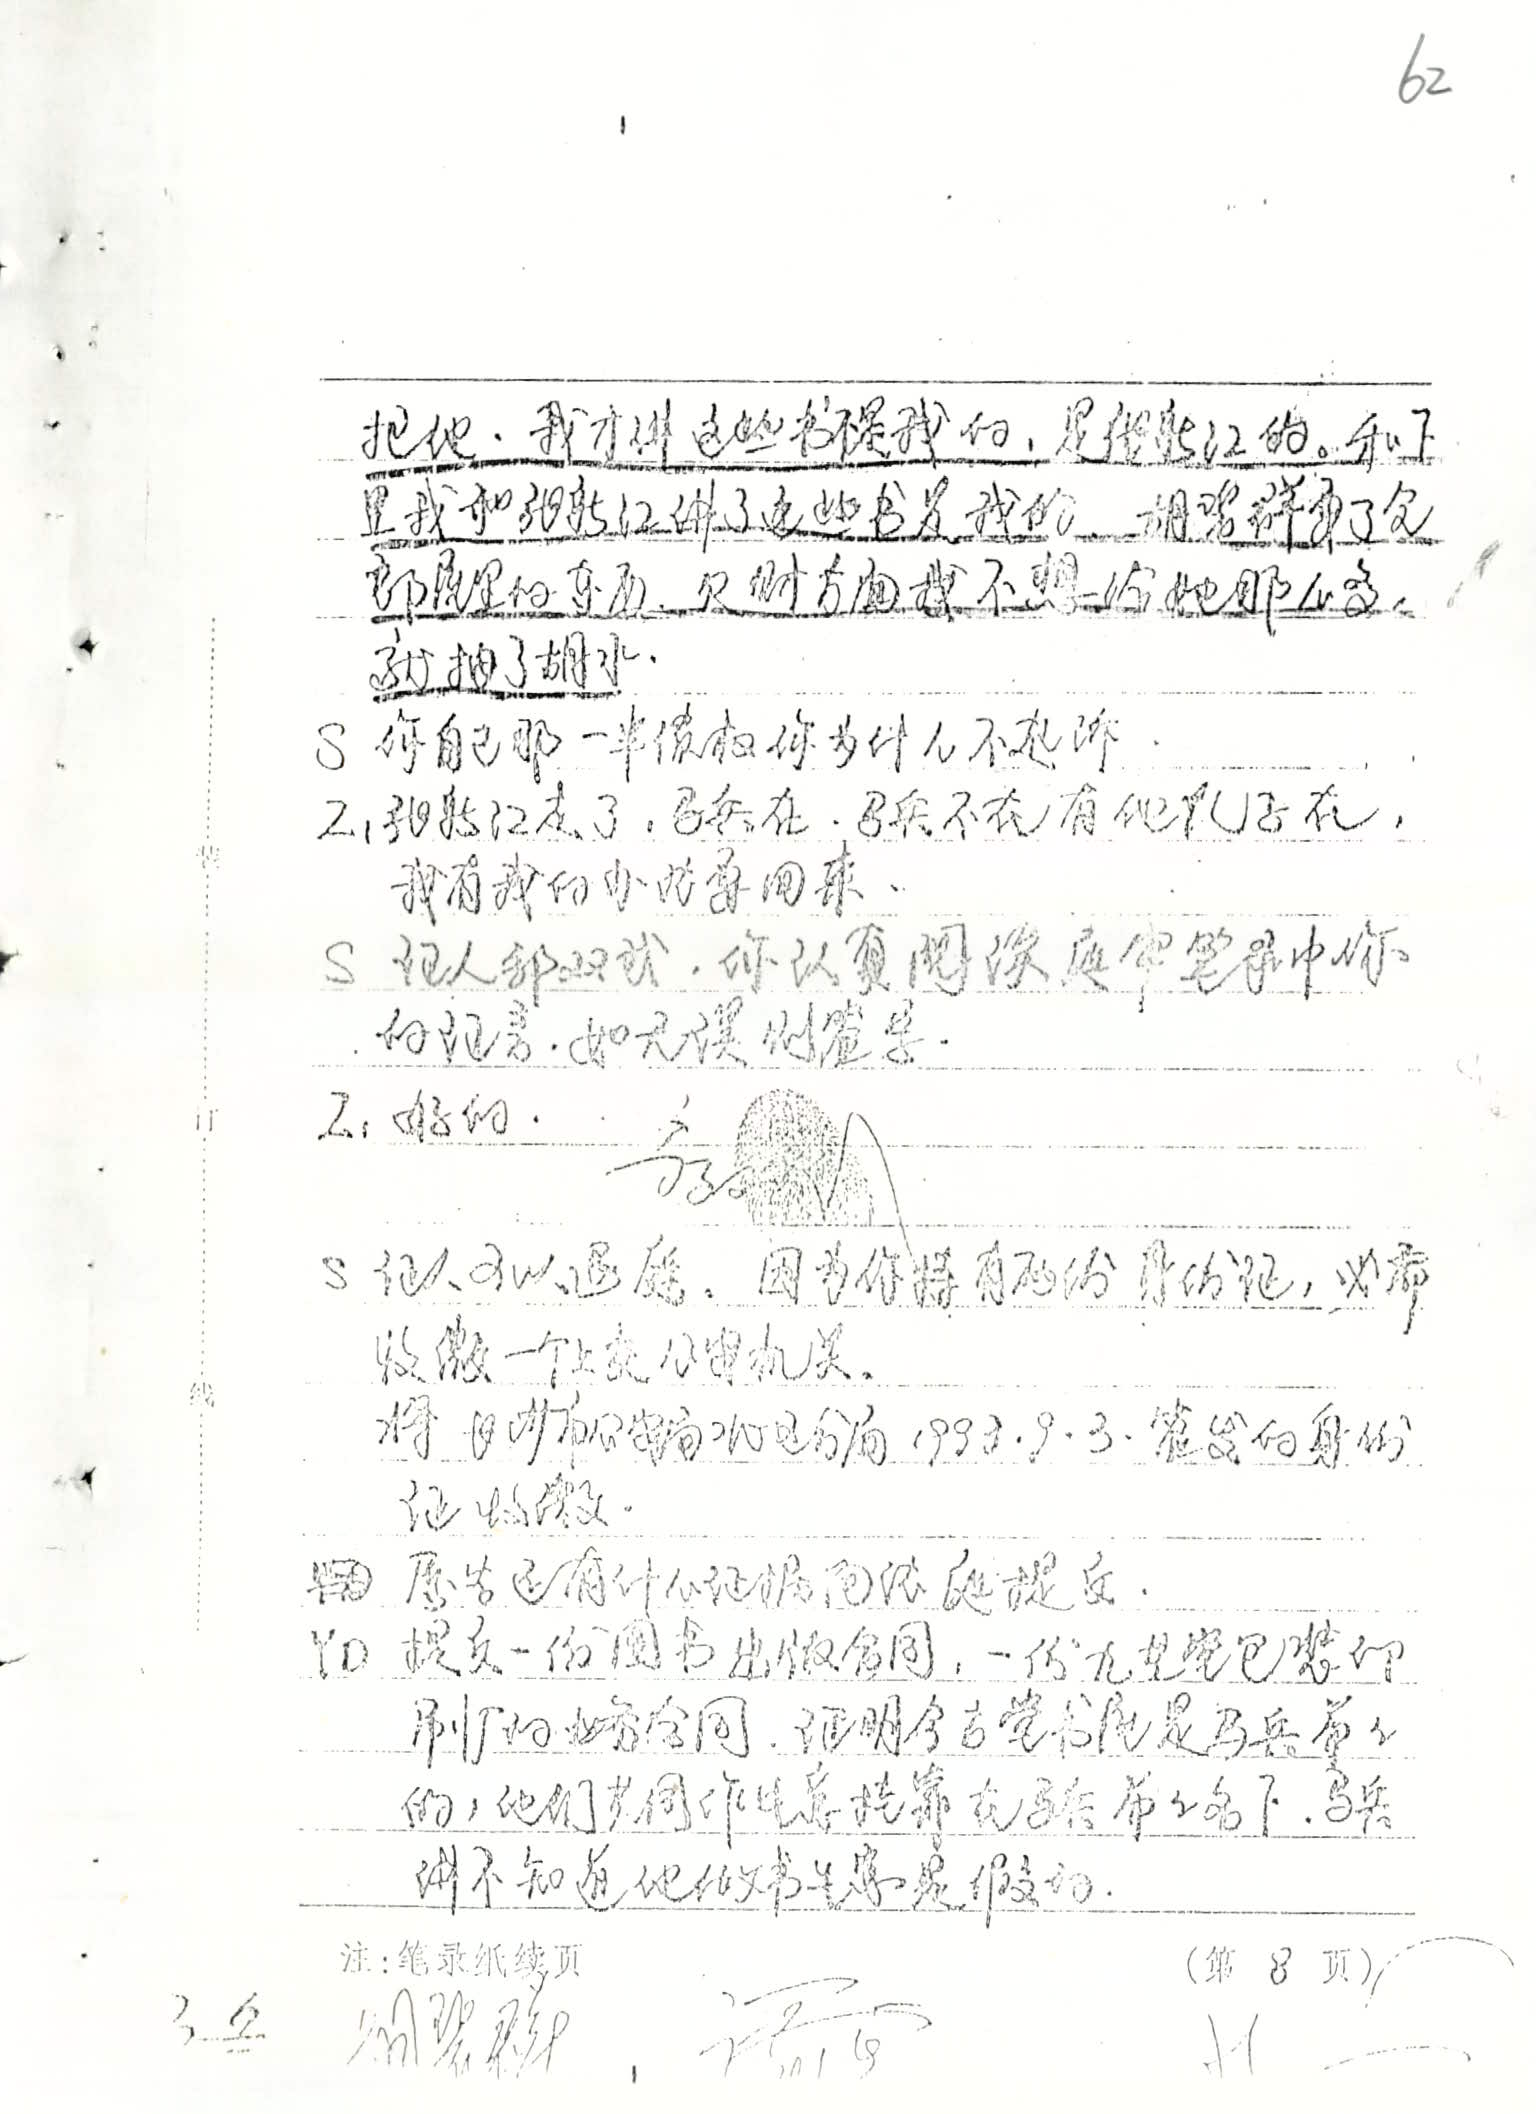 62
把他.我才讲这些书不是我的,是张新江的。私下
里我和张新江讲了这些书是我的.胡碧群弄了全
部店里的东西.只财方面我不想给她那么多,
就抽了胡水.
S 你自己那一半债权你为什么不起诉.
Z1 张新江走了,马兵在.马兵不在有他儿子在,
我有我的办法弄回来.
S 证人 .你认真阅读庭审笔录中你
的证言.如无误则签字.
Z1 好的.
S 证人可以退庭.因为你持有两份身份证,必需
收缴一个上交公安机关.
将长沙市公安局 分局1993.9.3.签发的身份
证收缴.
原告还有什么证据向法庭提交.
YD 提交一份图书出版合同,一份九芝堂包装印
刷厂的业务合同.证明今古堂书店是马兵 
的,他们共同作生意挂靠在马兵 名下.马兵
讲不知道他们做书生意是假的.
注:笔录纸续页
(第 8 页)
胡碧群